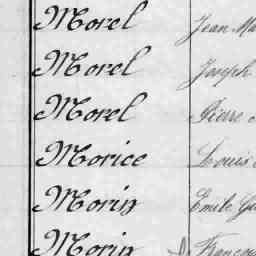 Morel Jean Ma
Morel Joseph
Morel Pierre
Morice Louis
Morin Emile Gu
Morin Franço